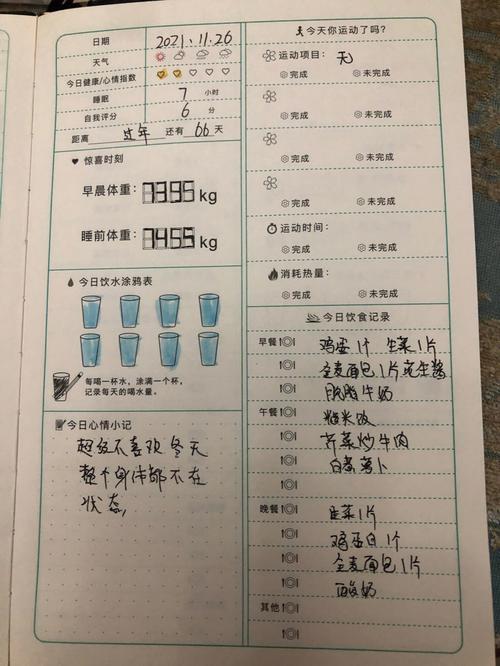 日期 2021.11.26
天气
今日健康/心情指数
睡眠 7 小时
自我评分 6 分
距离 过年 还有 66 天
惊喜时刻
早晨体重: 73.95 kg
睡前体重: 74.55 kg
今日饮水涂鸦表
每喝一杯水,涂满一个杯,
记录每天的喝水量。
今日心情小记
超级不喜欢冬天
整个身体都不在
状态,
今天你运动了吗?
运动项目: 无
完成 未完成
完成 未完成
完成 未完成
完成 未完成
运动时间:
完成 未完成
消耗热量:
完成 未完成
今日饮食记录
早餐 鸡蛋1个 生菜1片
全麦面包1片花生酱
脱脂牛奶
午餐 糙米饭
芹菜炒牛肉
白煮萝卜
晚餐 生菜1片
鸡蛋白1个
全麦面包1片
酸奶
其他